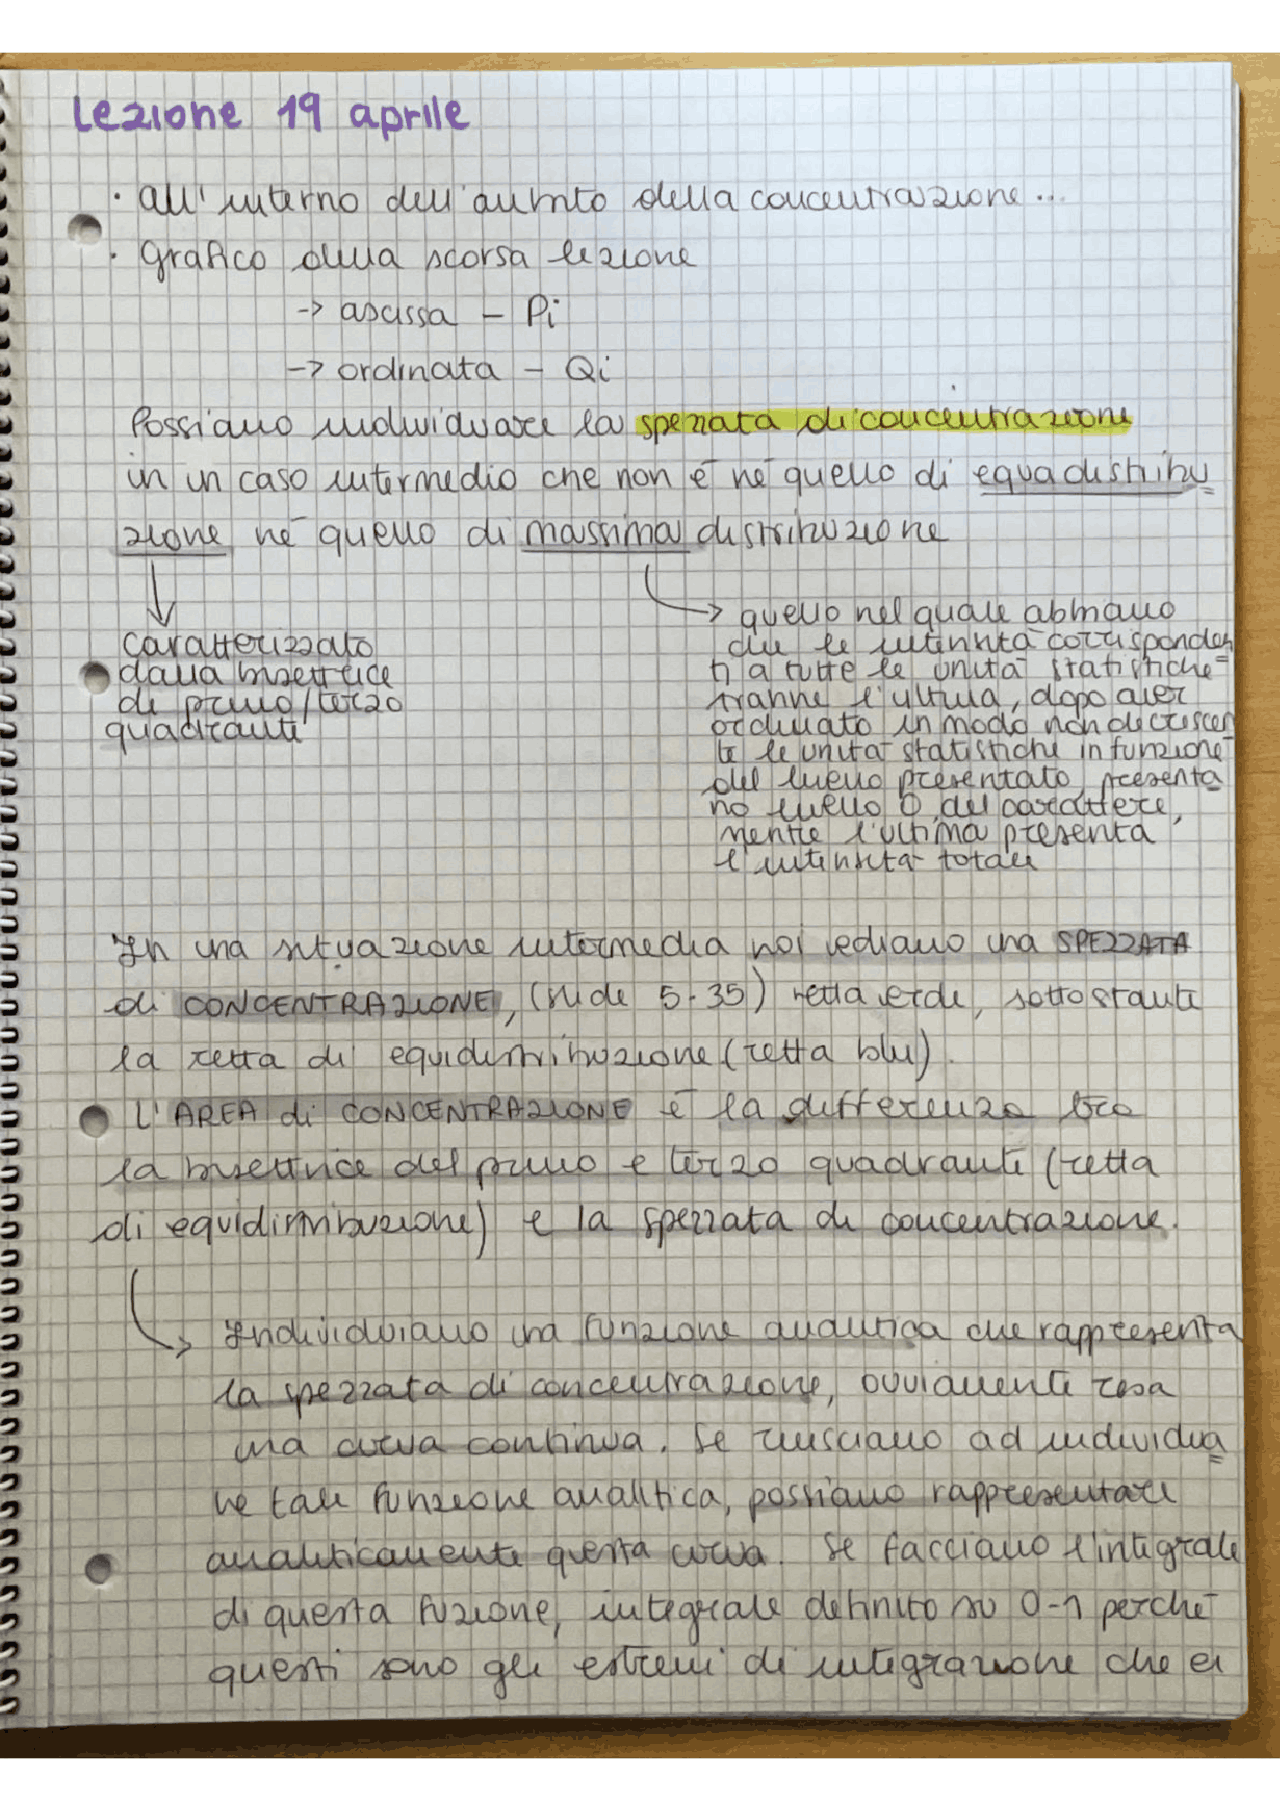 Lezione 19 aprile
· all'interno dell'ambito della concentrazione...
· grafico della scorsa lezione
-> ascissa - Pi
-> ordinata - Qi
Possiamo individuare la spezzata di concentrazione
in un caso intermedio che non è né quello di equadistribu
zione né quello di massima distribuzione
caratterizzato
dalla bisettrice
di primo/terzo
quadrante
-> quello nel quale abbiamo
che le intensità corrisponden
ti a tutte le unità statistiche
tranne l'ultima, dopo aver
ordinato in modo non decrescen
te le unità statistiche in funzione
del livello presentato, presenta
no livello 0 del carattere,
mentre l'ultima presenta
l'intensità totale
In una situazione intermedia noi vediamo una SPEZZATA
di CONCENTRAZIONE, (slide 5.35) retta verde, sottostante
la retta di equidistribuzione (retta blu).
L'AREA di CONCENTRAZIONE è la differenza tra
la bisettrice del primo e terzo quadrante (retta
di equidistribuzione) e la spezzata di concentrazione.
Individuiamo una funzione analitica che rappresenta
la spezzata di concentrazione, ovviamente resa
una curva continua. Se riusciamo ad individua
re tale funzione analitica, possiamo rappresentare
analiticamente questa curva. Se facciamo l'integrale
di questa fuzione, integrale definito su 0-1 perché
questi sono gli estremi di integrazione che ci